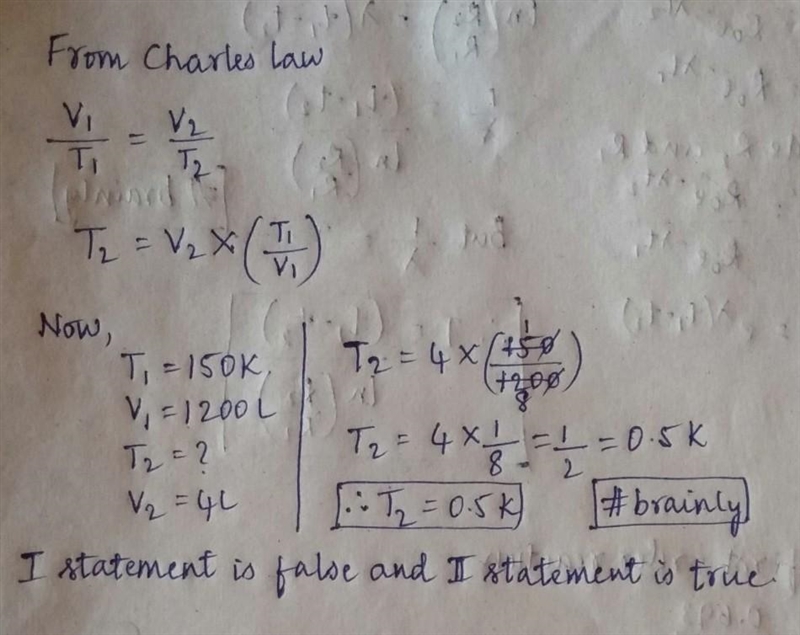 From Charles law
V₁/T₁ = V₂/T₂
T₂ = V₂ × (T₁/V₁)
Now,
T₁ = 150K
V₁ = 1200L
T₂ = ?
V₂ = 4L
T₂ = 4 × (150/1200) 1 8
T₂ = 4 × 1/8 = 1/2 = 0.5 K
∴ T₂ = 0.5K
#brainly
I statement is false and II statement is true.